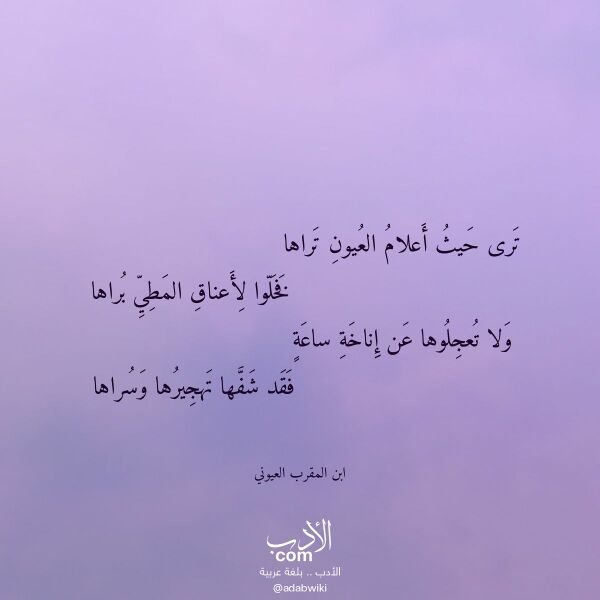 تَرى حَيثُ أَعلامُ العُيونِ تَراها
فَخَلّوا لِأَعناقِ المَطِيِّ بُراها
وَلا تُعجِلُوها عَن إِناخَةِ ساعَةٍ
فَقَد شَفَّها تَهجِيرُها وَسُراها
ابن المقرب العيوني
الأدب
.com
الأدب .. بلغة عربية
@adabwiki